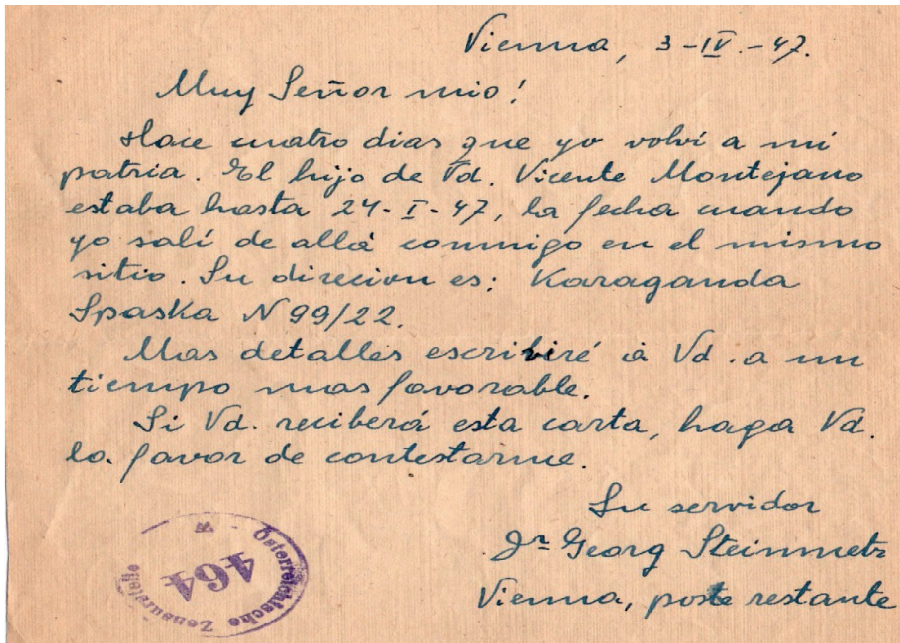 Vienna, 3-IV.-47.
Muy Señor mio!
Hace cuatro dias que yo volvi a mi
patria. El hijo de Vd. Vicente Montejano
estaba hasta 24-I-47, la fecha cuando
yo salí de allá conmigo en el mismo
sitio. Su direcion es: Karaganda
Spaska N 99/22.
Mas detalles escribiré á Vd. a un
tiempo mas favorable.
Si Vd. reciberá esta carta, haga Vd.
lo favor de contestarme.
Su servidor
Dr Georg Steinmetz
Vienna, poste restante
Österreichische Zensurstelle
464
W